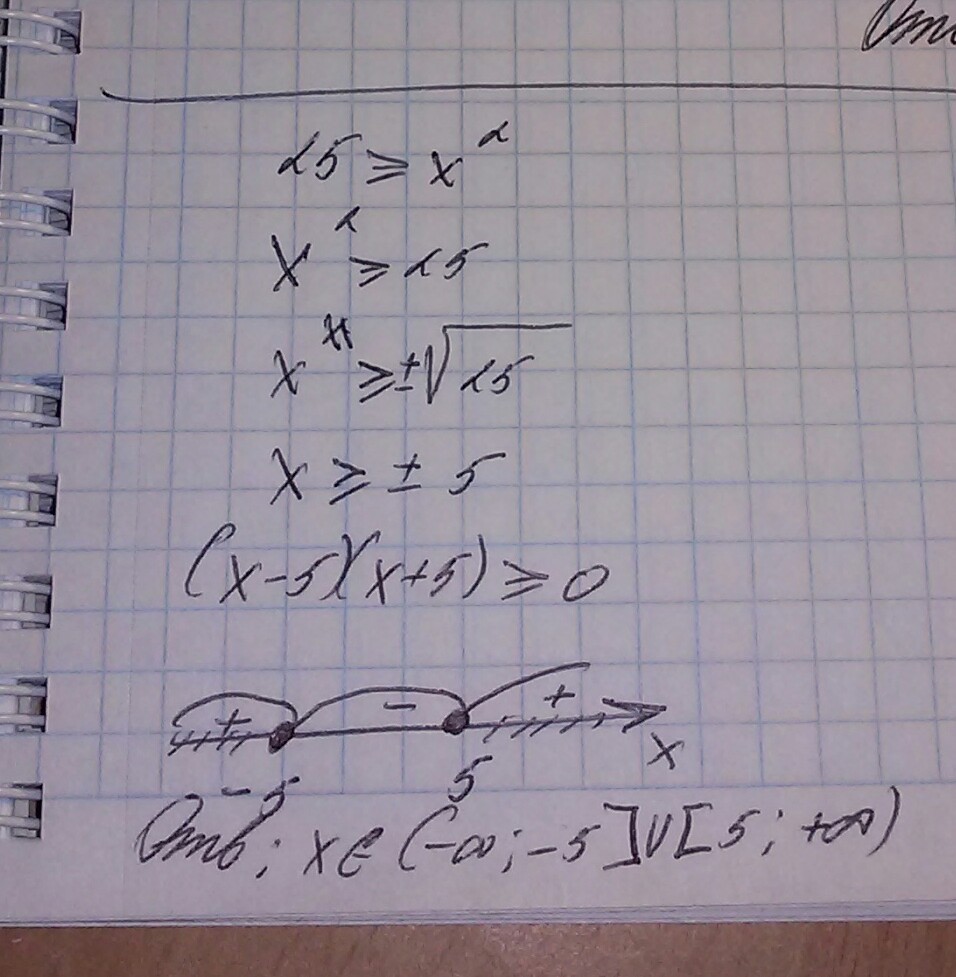 25 ≥ x²
x² ≥ 25
x ≥ ±√25
x ≥ ± 5
(x-5)(x+5) ≥ 0
+ - +
-5 5 x
Отв; x ∈ (-∞; -5] ∪ [5; +∞)